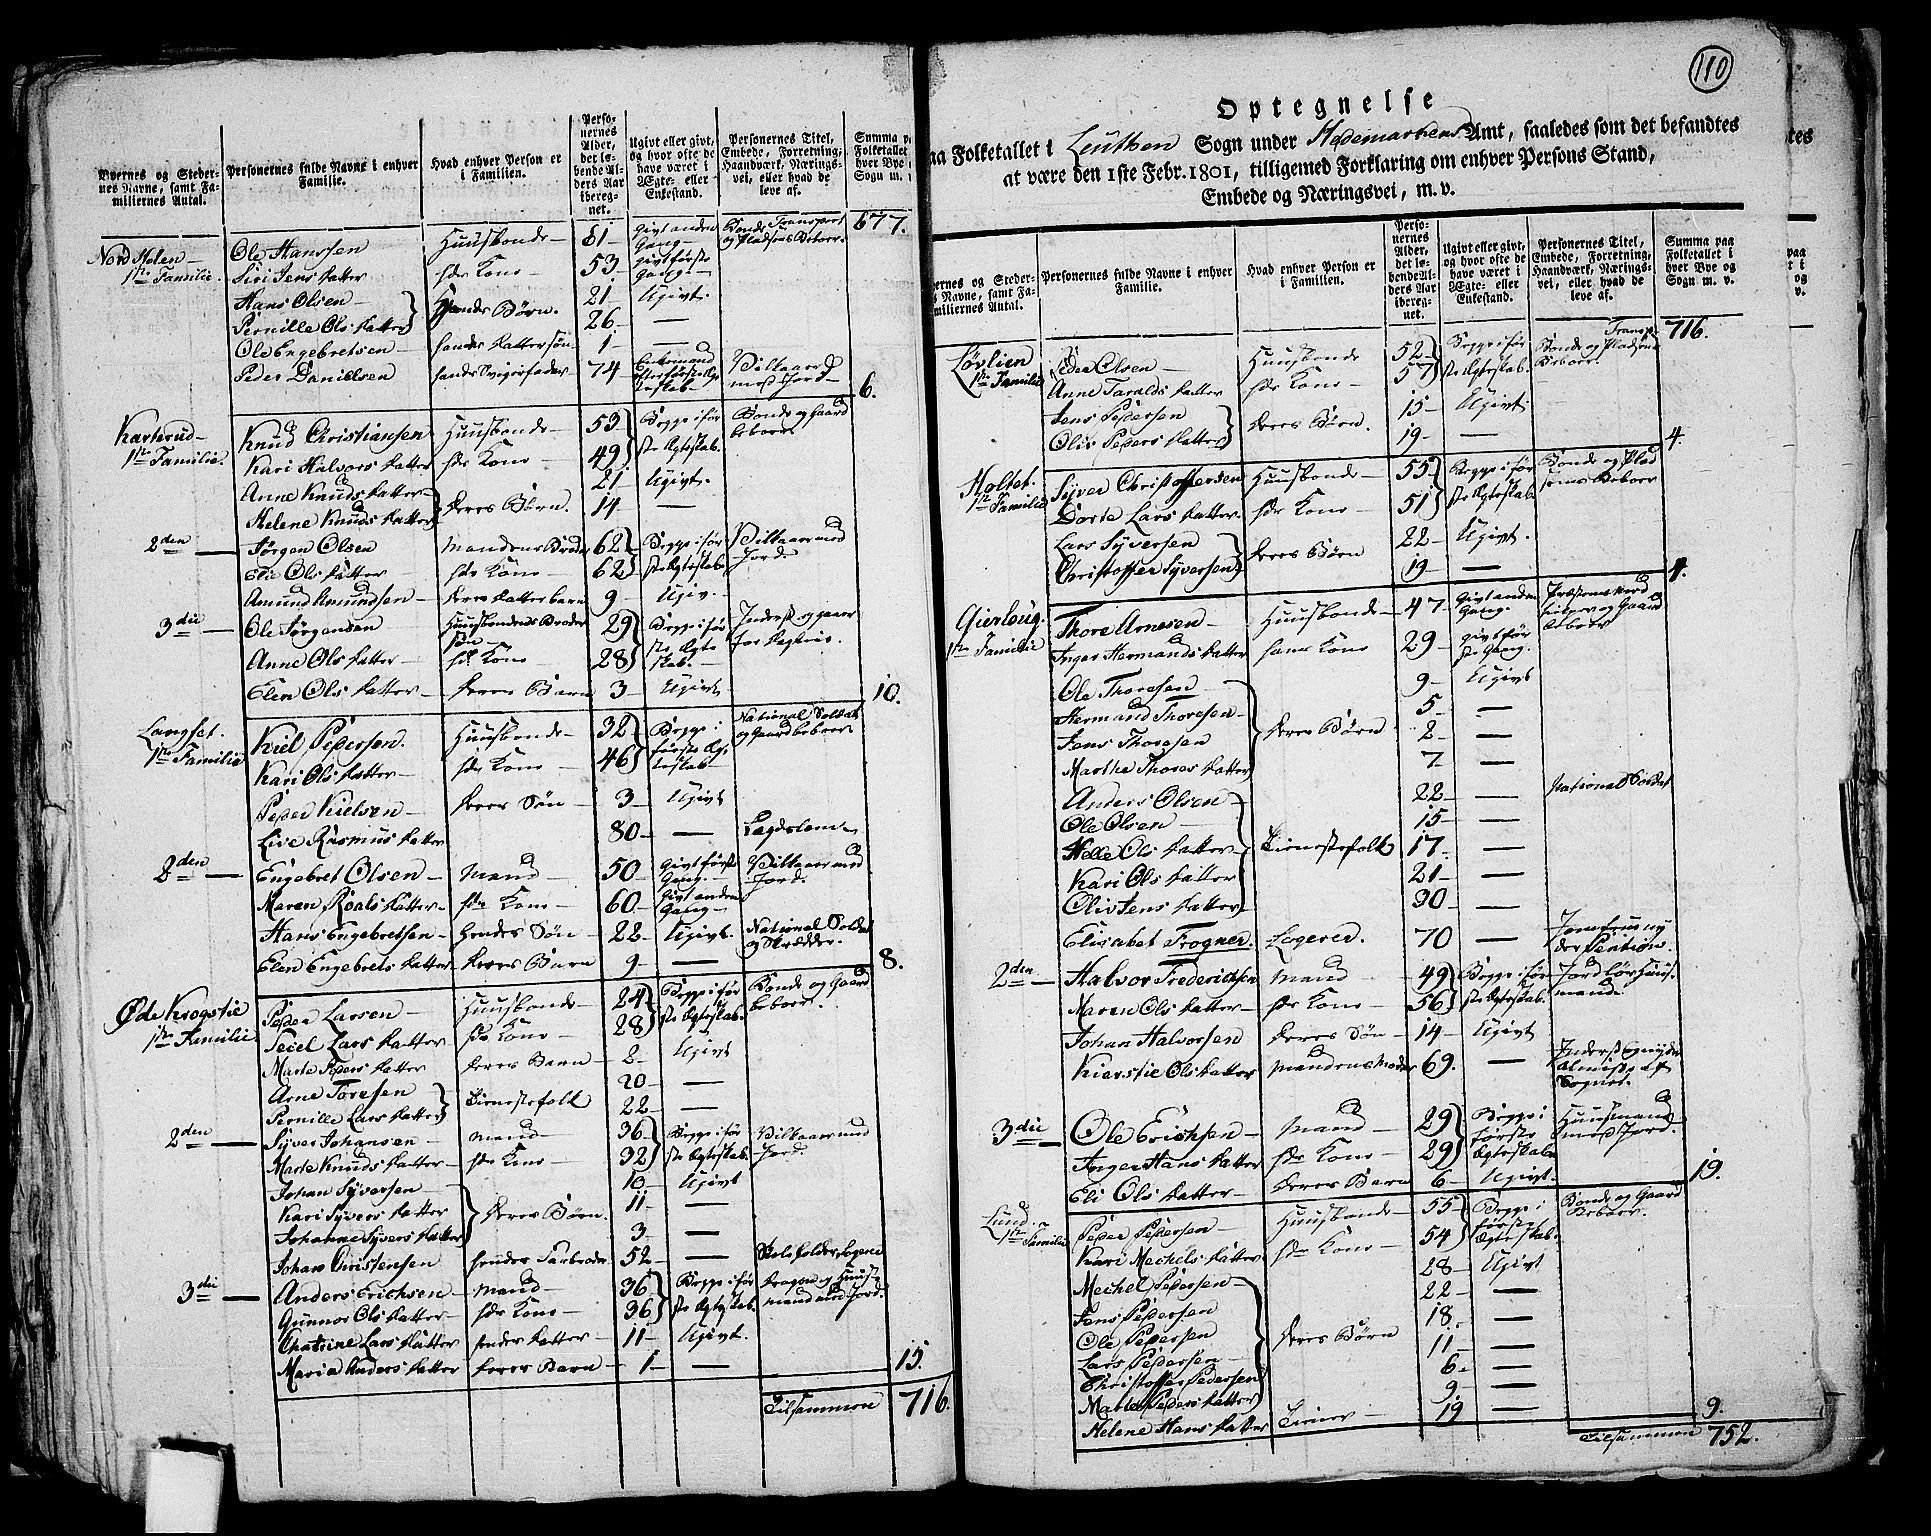 110
Byernes og Steder-
nes Navne, samt Fa-
miliernes Antal.
Personernes fulde Navne i enhver
Familie.
Hvad enhver Person er
i Familien.
Perso-
nernes
Alder,
det lø-
bende Al-
ders Aar
ibereg-
net.
Ugivt eller givt,
og hvor ofte de
have været i
Ægte- eller
Enkestand.
Personernes Titel,
Embede, Forretning,
Haandværk, Nærings-
vei, eller hvad de
leve af.
Summa p
Folketallet
hver Bye
Sogn m.
Transport 677.
Nord Holen
1ste Familie. Ole Hanssen Huusbonde 61 Givt anden Gang Bonde og Pladsens Beboer.
Siri Jens datter hs Kone 53 Givt første Gang
Hans Olsen 21 Ugivt.
Pernille Ols datter hands Børn. 26 —
Ole Engebretsen hands datter søn 1 —
Peder Danielsen hands Svigerfader 74 Enkemand efter første Ægteskab Vilkaarsmand med Jord 6.
Karterud
1ste Familie. Knud Christiansen Huusbonde 53 Begge i første Ægteskab. Bonde og Gaard beboer
Kari Halvors datter hs Kone 49
Anne Knuds datter 21 Ugivt.
Helene Knuds datter deres Børn. 14 —
2den Jørgen Olsen Mandens Broder 62 Begge i første Ægteskab Vilkaarsmand Jord
Elie Ols datter hs Kone 62
Amund Amundsen deres datterbarn 9 Ugiv.
3die Ole Jørgensen Huusbondens Broder søn 29 Begge i første Ægteskab. Inderst og gaaer for dagleie.
Anne Ols datter hs Kone 28
Elen Ols datter deres Barn 3 Ugivt 10.
Langset.
1ste Familie Kiel Pedersen. Huusbonde 32 Begge i første Ægteskab National Soldat og Gaardbeboer
Kari Ols datter hs Kone 46
Peder Kielsen deres Søn 3 Ugivt
Live Rasmus datter 80 — Lægdslem
2den Engebret Olsen Mand 50 Givt første Gang Vilkaarsmand Jord.
Maren Roals datter hs Kone 60 Givt anden Gang
Hans Engebretsen hendes Søn 22 Ugivt. National Soldat og Skrædder.
Elen Engebrets datter deres Barn 9 — 8.
Øde Krogstie
1ste Familie. Peder Larsen Huusbonde 24 Begge i første Ægteskab. Bonde og Gaard beboer
Sicel Lars datter hs Kone 28
Marte Peders datter deres Barn 2 Ugivt
Arne Toresen 20 —
Pernille Lars datter Tienestefolk 22 —
2den Syver Johansen Mand 36 Begge i første Ægteskab. Vilkaarsmand Jord
Marte Knuds datter hs Kone 32
Johan Syversen 10 Ugivt
Kari Syvers datter deres Børn. 11 —
Johanne Syvers datter 3 —
Johan Christensen hendes Farbroder 52 —
3die Anders Erichsen Mand 36 Begge i første Ægteskab. Dragon og Huusmand med Jord.
Gunnor Ols datter hs Kone 36
Chatrine Lars datter hendes datter 11 Ugivt.
Maria Anders datter deres Barn 1 — 15.
Tilsammen 716.
Optegnelse
aa Folketallet i Leuthen Sogn under Hedemarkens Amt, saaledes som det befandtes
at være den 1ste Febr. 1801, tilligemed Forklaring om enhver Persons Stand,
Embede og Næringsvei, m. v.
ernes og Steder-
s Navne, samt Fa-
miliernes Antal.
Personernes fulde Navne i enhver
Familie.
Hvad enhver Person er
i Familien.
Perso-
nernes
Alder,
det lø-
bende Al-
ders Aar
ibereg-
net.
Ugivt eller givt,
og hvor ofte de
have været i
Ægte- eller
Enkestand.
Personernes Titel,
Embede, Forretning,
Haandværk, Nærings-
vei, eller hvad de
leve af.
Summa paa
Folketallet i
hver Bye og
Sogn m. v.
Transp. 716.
Løvlien
1ste Familie Peder Olsen Huusbonde 52 Begge i første Ægteskab. Bonde og Pladsens Beboer
Anne Taralds datter hs Kone 57
Jens Pedersen 15 Ugivt
Oliv Peders datter deres Børn. 19 — 4.
Holtet.
1ste Familie Syver Christoffersen Huusbonde 55 Begge i første Ægteskab Bonde og Pladsens Beboer
Dorte Lars datter hs Kone 51
Lars Syversen 22 Ugivt.
Christoffer Syversen deres Børn 19 — 4.
Gierlaug.
1ste Familie Thore Arnesen Huusbonde 47 Givt anden Gang. Gaard beboer
Inger Hermands datter hans Kone 29 givt første Gang.
Ole Thoresen 9 Ugivt
Hermand Thoresen 5 —
Jens Thoresen deres Børn 2 —
Marthe Thores datter 7 —
Anders Olsen 22 — National Soldat
Ole Olsen 15 —
Helle Ols datter Tienestefolk 17 —
Kari Ols datter 21 —
Oliv Jens datter 30 —
Elisabet Trogner. Logerer. 70 — Jomfrue nyder Pention.
2den Halvor Frederichsen Mand 49 Begge i første Ægteskab. Jordløs Huusmand
Maren Ols datter hs Kone 56
Johan Halvorsen deres Søn 14 Ugivt
Kierstie Ols datter Mandens Moder 69. — Inderst og nyder almisse af Sognet.
3die Ole Erichsen Mand 29 Begge i første Ægteskab Huusmand med Jord.
Inger Hans datter hs Kone 29
Eli Ols datter deres Barn 6 Ugivt. 19.
Lund
1ste Familie Peder Pedersen Huusbonde 55 Begge i første Ægteskab. Bonde og Gaard Beboer.
Kari Mechels datter hs Kone 54
Mechel Pedersen 28 Ugivt
Jens Pedersen 22 —
Ole Pedersen 18. —
Lars Pedersen deres Børn 11 —
Christoffer Pedersen 6 —
Marte Peders datter 9 —
Helene Hans datter Tiener 19 — 9.
Tilsammen 752.